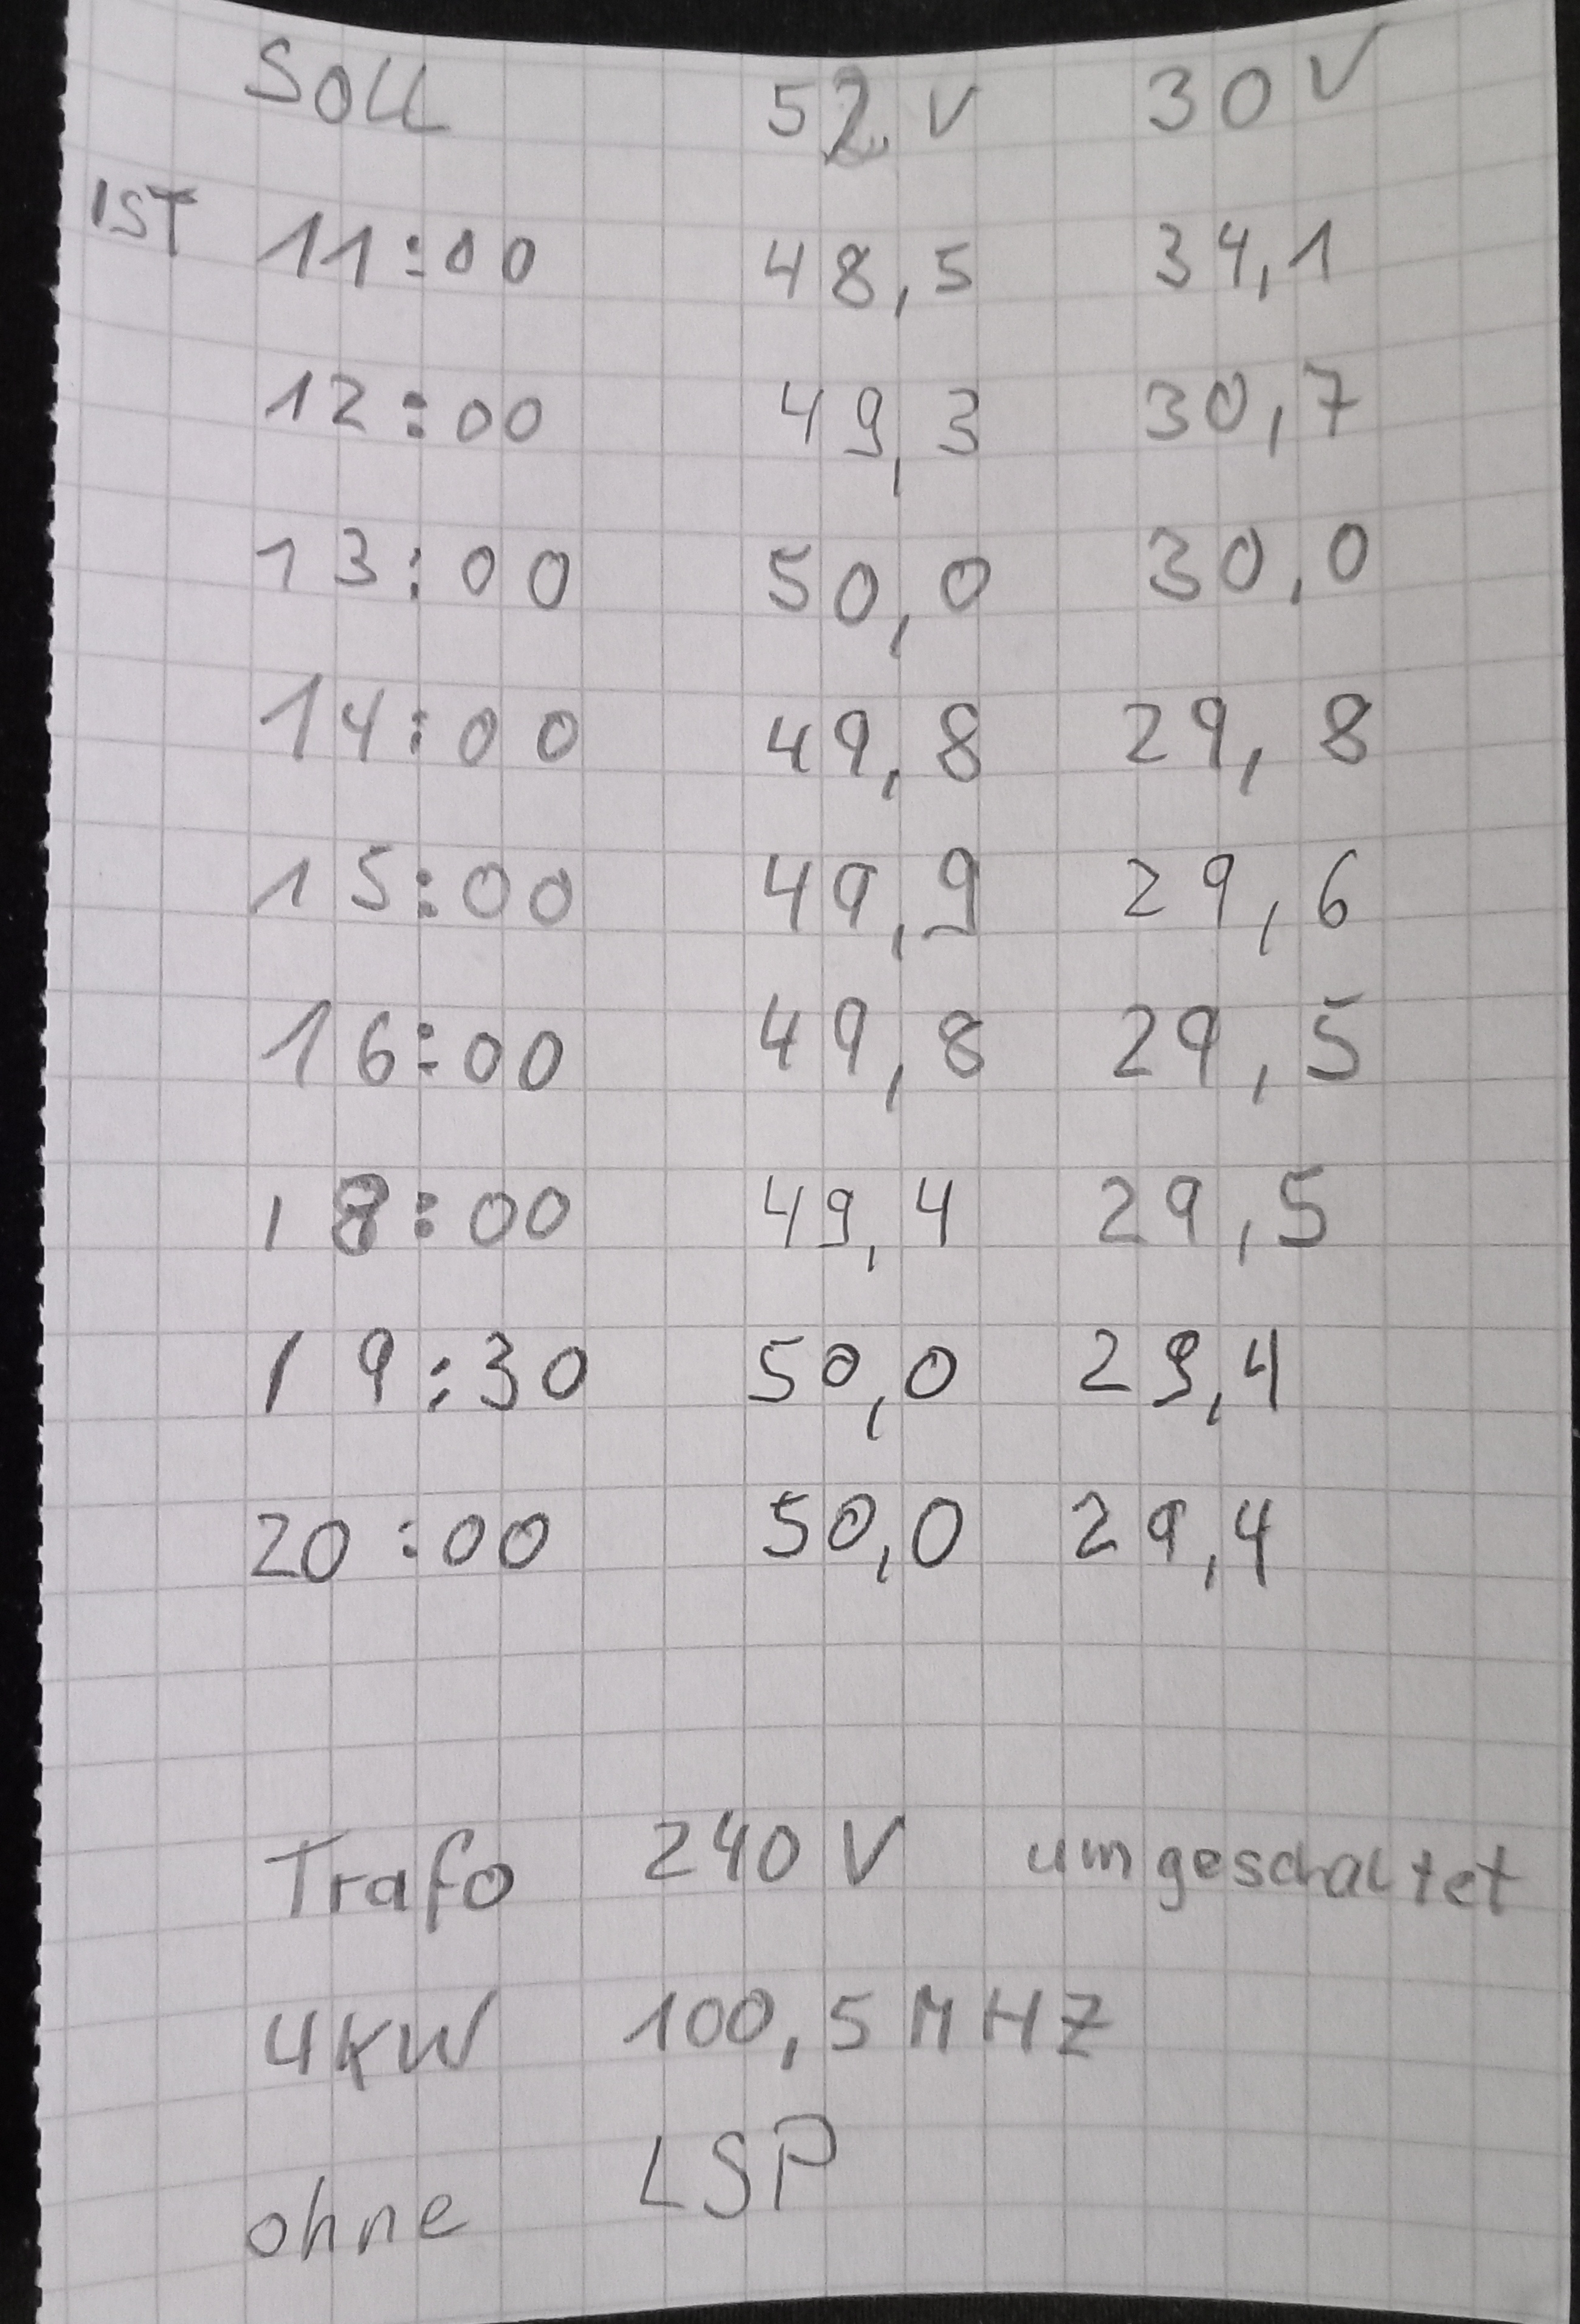 Soll 52 V 30 V
IST 11:00 48,5 34,1
12:00 49,3 30,7
13:00 50,0 30,0
14:00 49,8 29,8
15:00 49,9 29,6
16:00 49,8 29,5
18:00 49,4 29,5
19:30 50,0 29,4
20:00 50,0 29,4
Trafo 240 V umgeschaltet
UKW 100,5 MHZ
ohne LSP